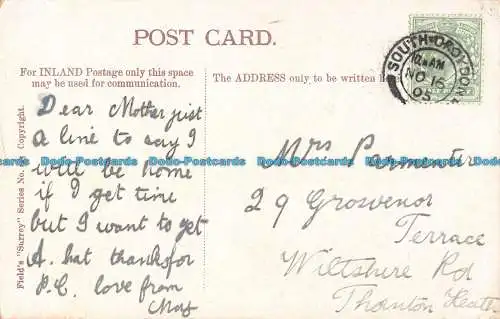 POST CARD.
For INLAND Postage only this space
may be used for communication.
The ADDRESS only to be written
Field's "Surrey" Series No.
Copyright.
SOUTH CROYDON
NO 16
05
Dear Mother just
a line to say I
will be home
if I get time
but I want to get
A. hat thanks for
P.C. love from
May
Mrs Parmenter
29 Grosvenor
Terrace
Wiltshire Rd
Thornton Heath
Docbad-Postcards Docbad-Postcards Docbad-Postcards Docbad-Postcards